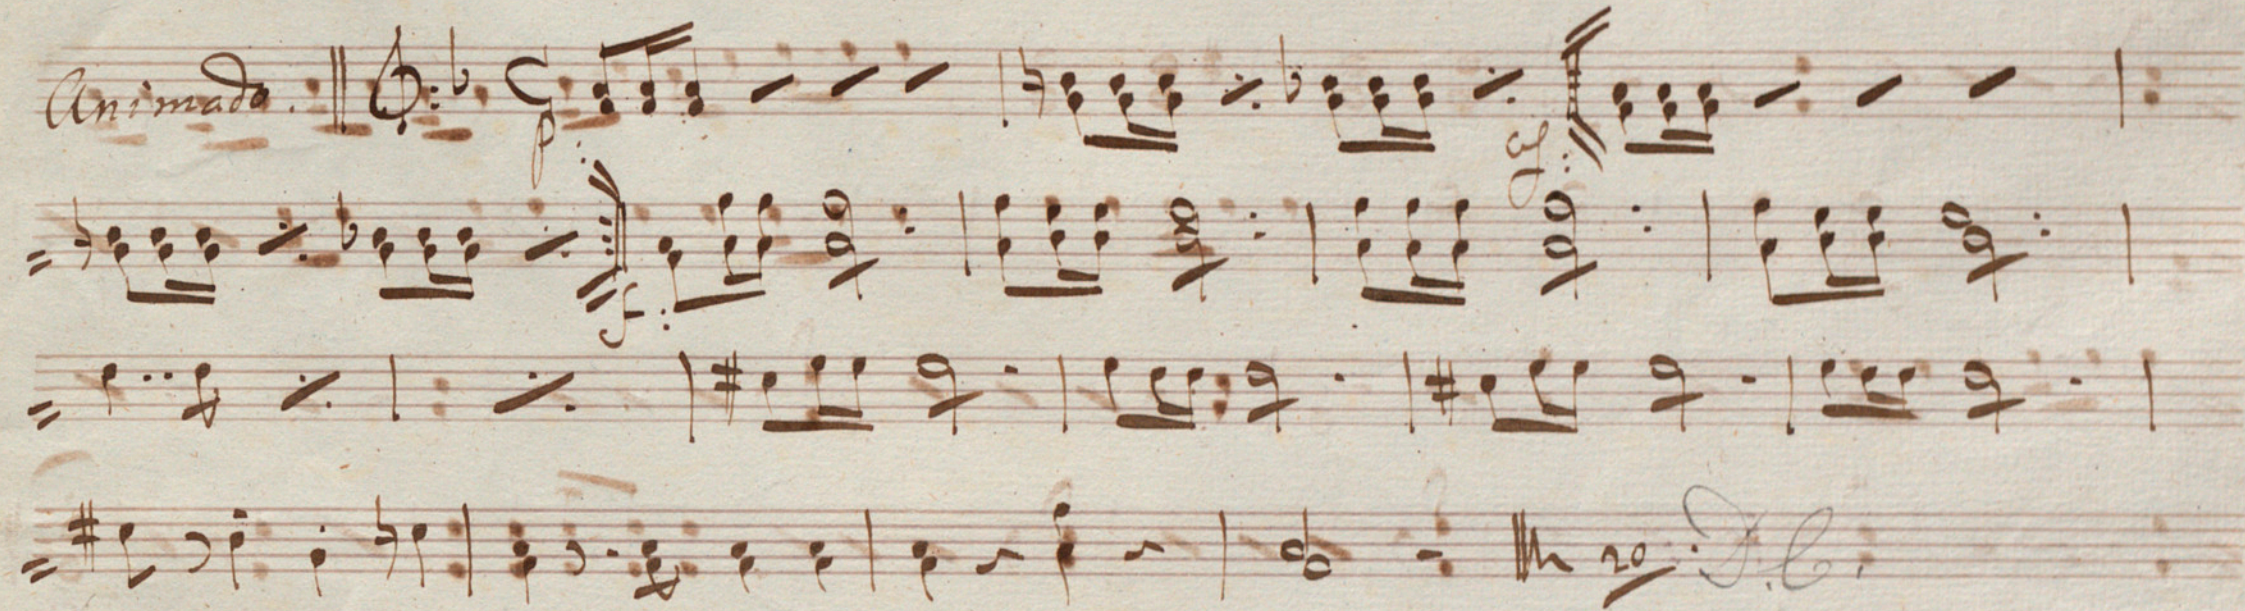 Animado.
p
sf:
f:
20. D.C.